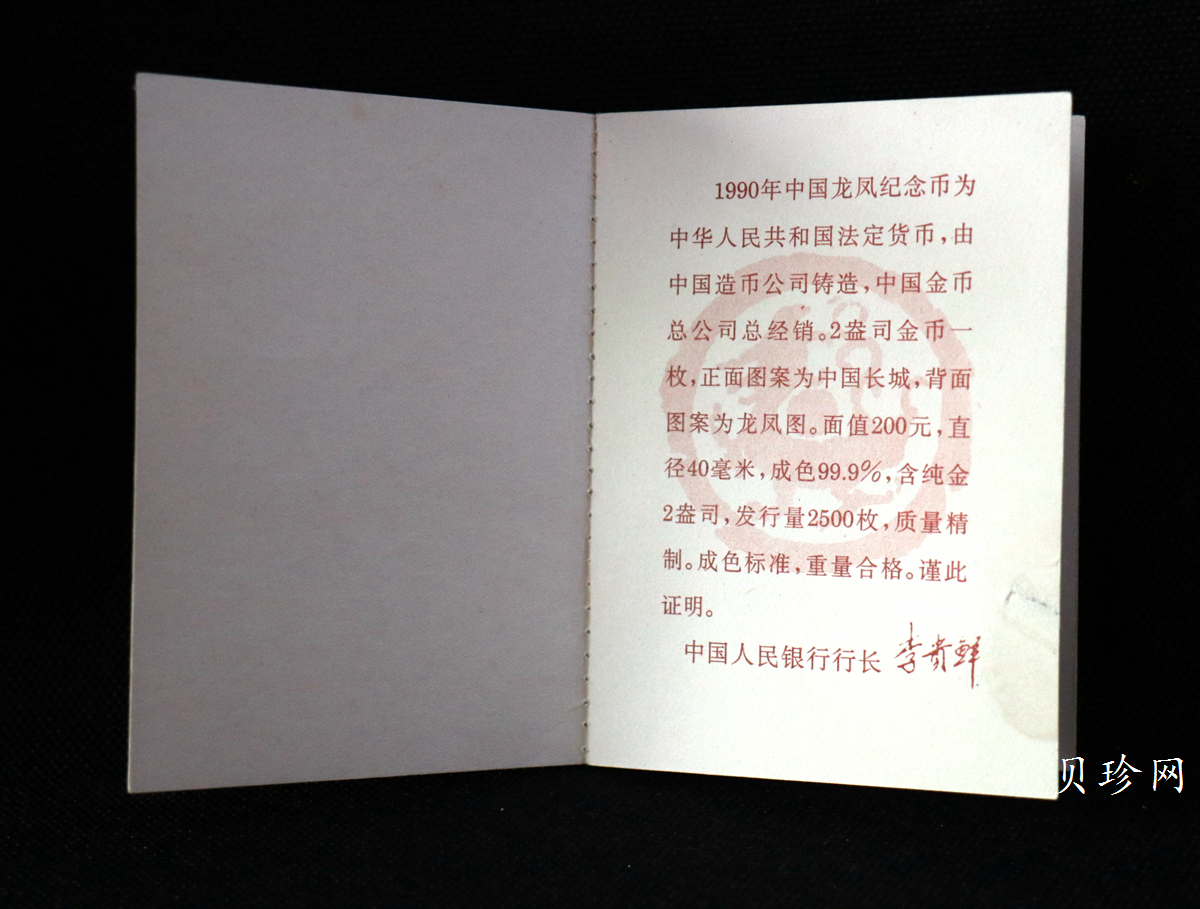 1990年中国龙凤纪念币为
中华人民共和国法定货币,由
中国造币公司铸造,中国金币
总公司总经销。2盎司金币一
枚,正面图案为中国长城,背面
图案为龙凤图。面值200元,直
径40毫米,成色99.9%,含纯金
2盎司,发行量2500枚,质量精
制。成色标准,重量合格。谨此
证明。
中国人民银行行长 李贵鲜
贝珍网